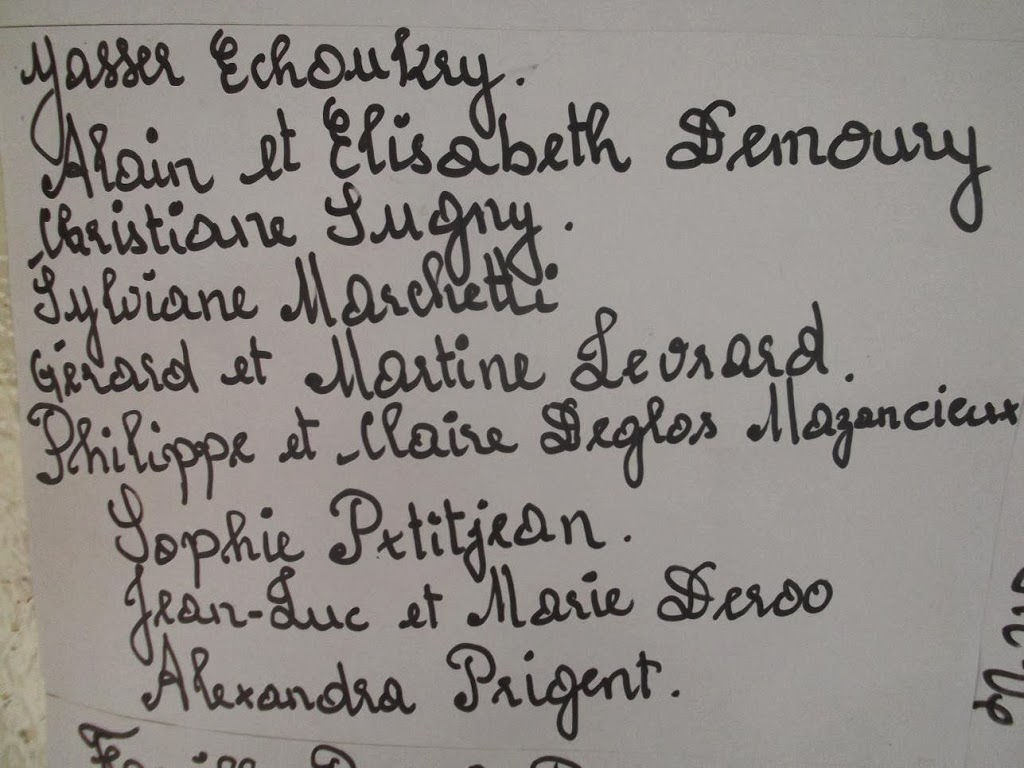 Yasser Echoukry.
Alain et Elisabeth Demoury
Christiane Sugny.
Sylviane Marchetti
Gérard et Martine Levrard.
Philippe et Claire Deglos Mazencieux
Sophie Petitjean.
Jean-Luc et Marie Deroo
Alexandra Prigent.